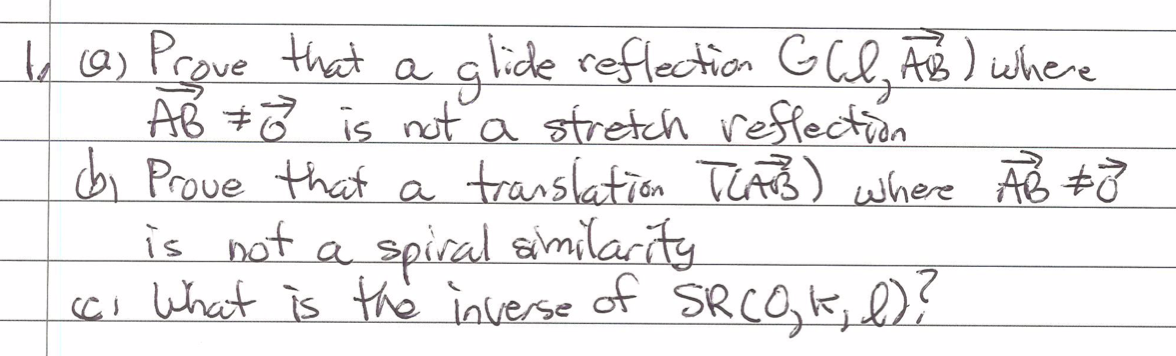 1. (a) Prove that a glide reflection G(l, AB⃗) where
AB⃗ ≠ 0⃗ is not a stretch reflection
(b) Prove that a translation T(AB⃗) where AB⃗ ≠ 0⃗
is not a spiral similarity
(c) What is the inverse of SR(O, k, l)?